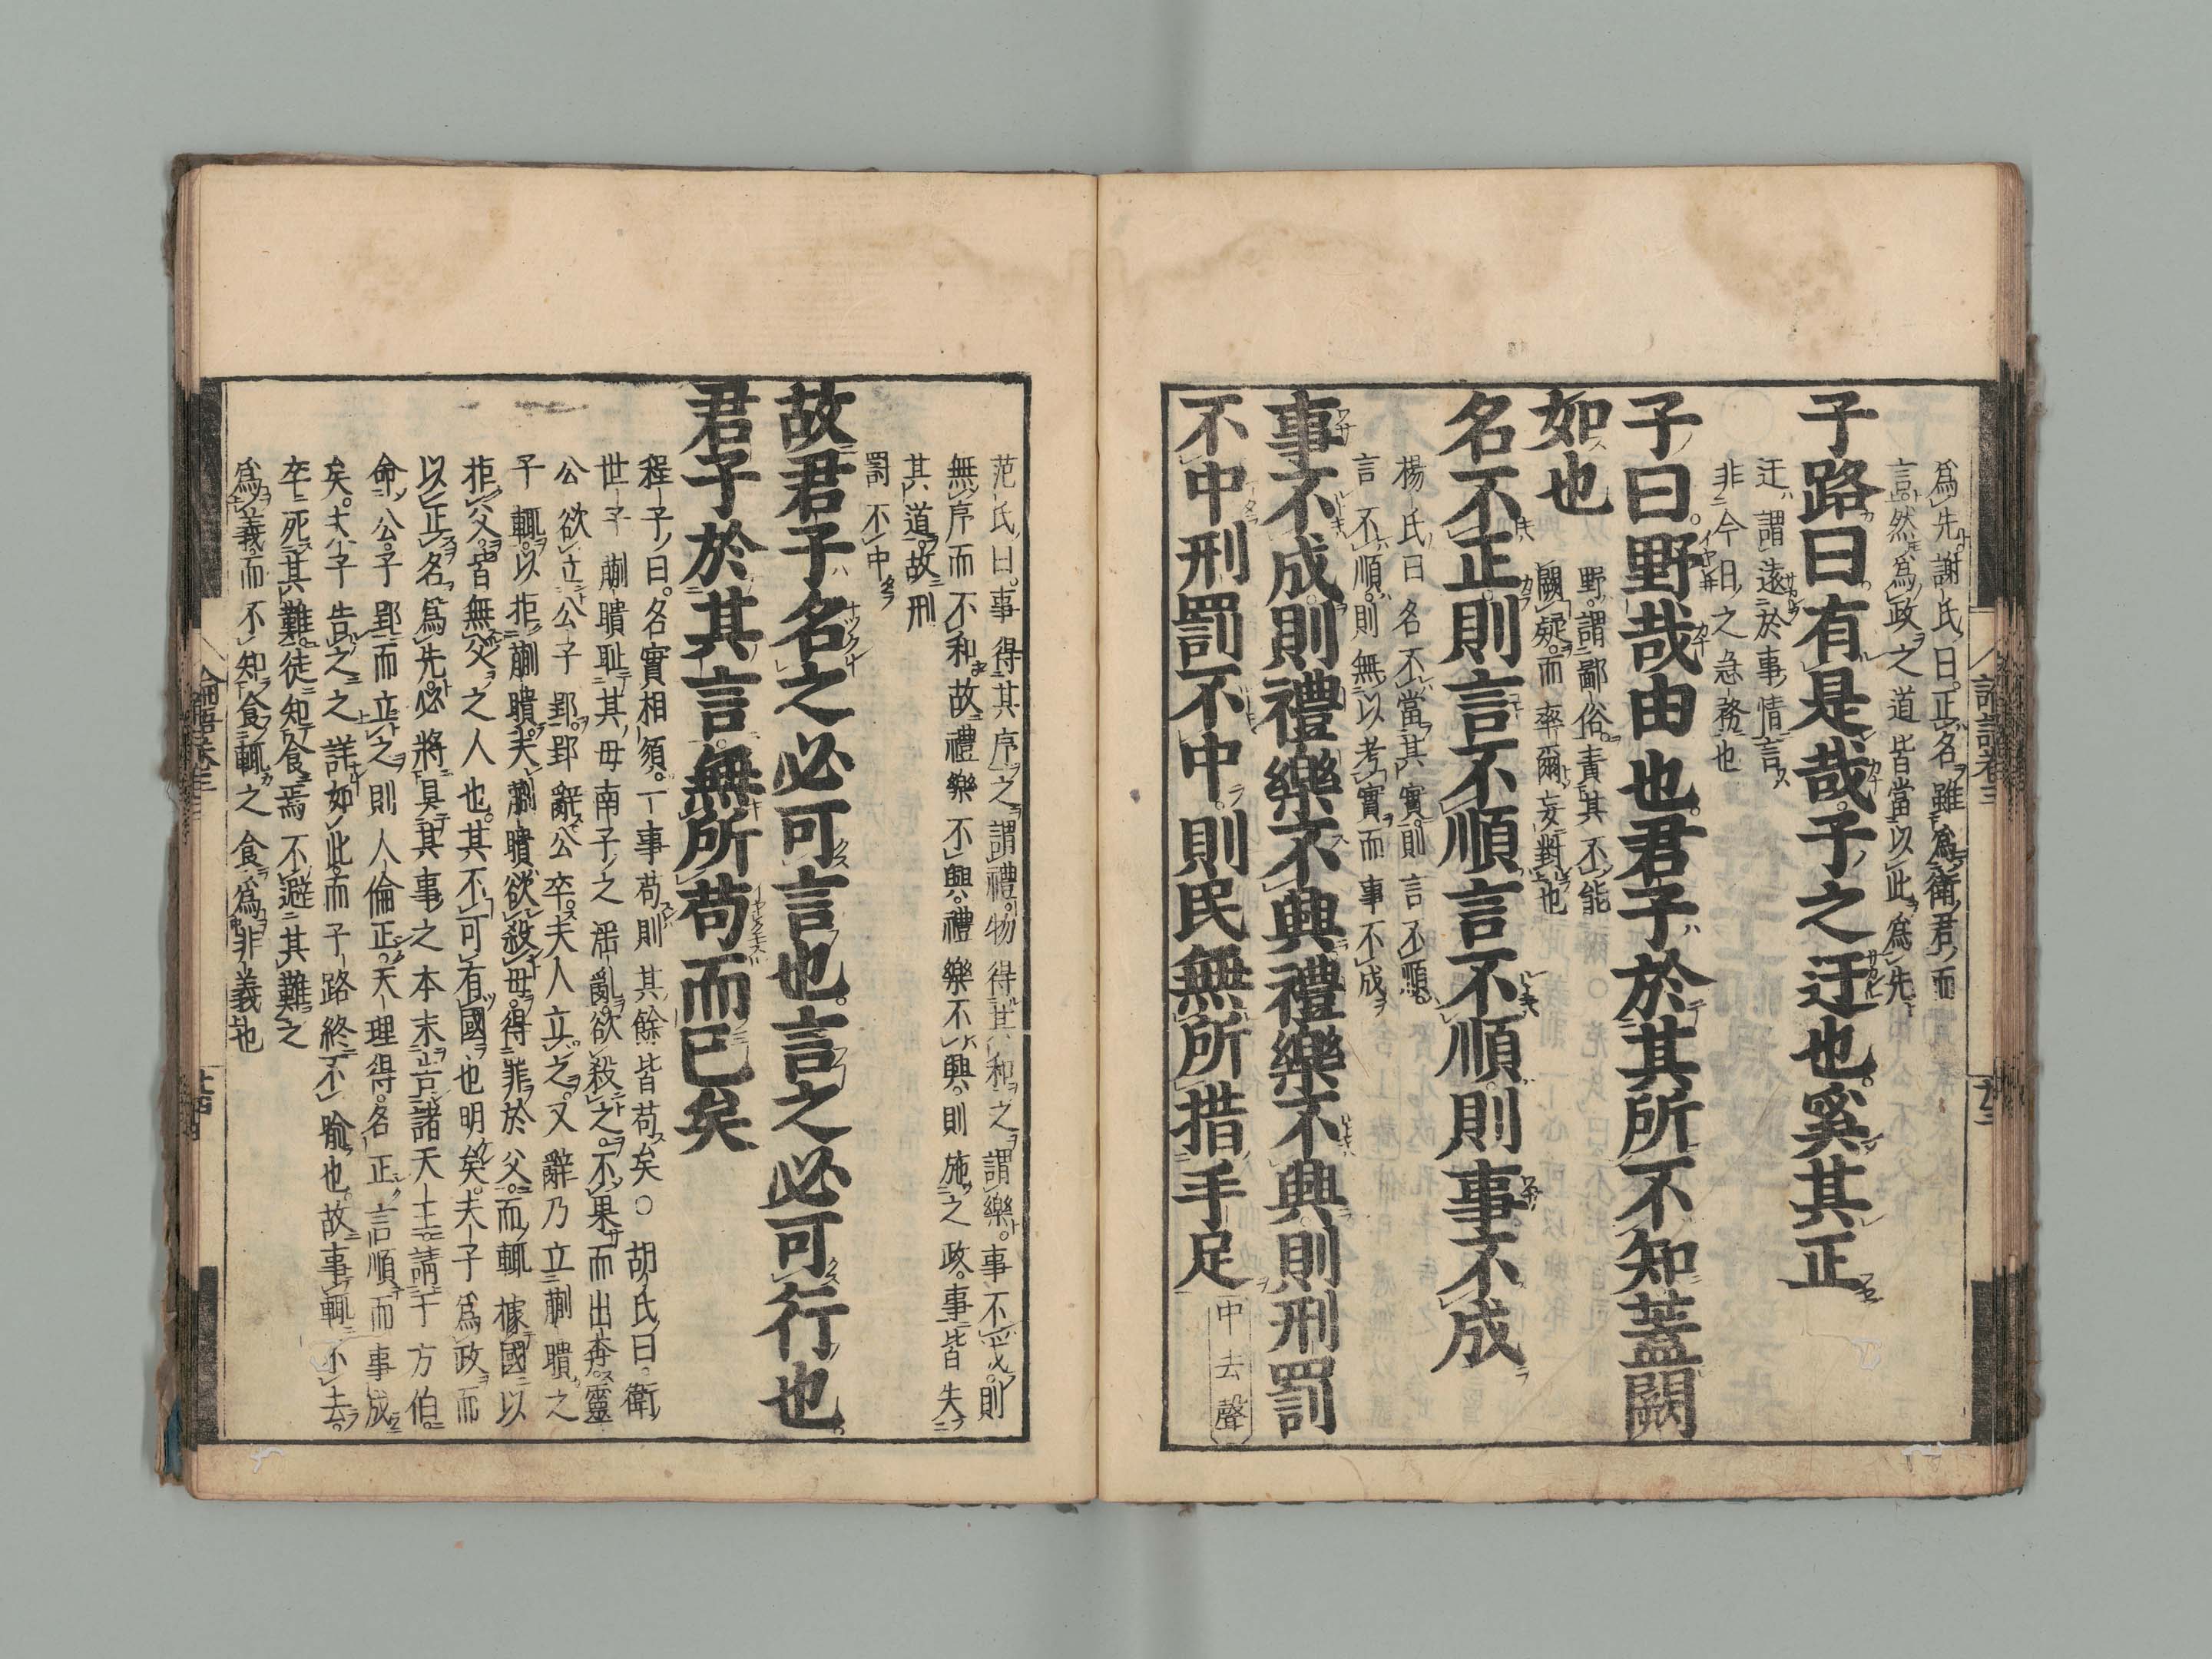 爲先謝氏曰正名雖爲衛君而
言然爲政之道皆當以此爲先
子路曰有是哉子之迂也奚其正
迂謂遠於事情言
非今日之急務也
子曰野哉由也君子於其所不知蓋闕
如也
野謂鄙俗責其不能
闕疑而率爾妄對也
名不正則言不順言不順則事不成
楊氏曰名不當其實則言不順
言不順則無以考實而事不成
事不成則禮樂不興禮樂不興則刑罰
不中刑罰不中則民無所措手足
中去聲
范氏曰事得其序之謂禮物得其和之謂樂事不成則
無序而不和故禮樂不興禮樂不興則施之政事皆失
其道故刑
罰不中
故君子名之必可言也言之必可行也
君子於其言無所苟而已矣
程子曰名實相須一事苟則其餘皆苟矣○胡氏曰衛
世子蒯聵恥其母南子之淫亂欲殺之不果而出奔靈
公欲立公子郢郢辭公卒夫人立之又辭乃立蒯聵之
子輒以拒蒯聵夫蒯聵欲殺母得罪於父而輒據國以
拒父皆無父之人也其不可有國也明矣夫子爲政而
以正名爲先必將具其事之本末告諸天王請于方伯
命公子郢而立之則人倫正天理得名正言順而事成
矣夫子告之之詳如此而子路終不喩也故事輒不去
卒死其難徒知食焉不避其難之
爲義而不知食輒之食爲非義也
論語卷三
十四